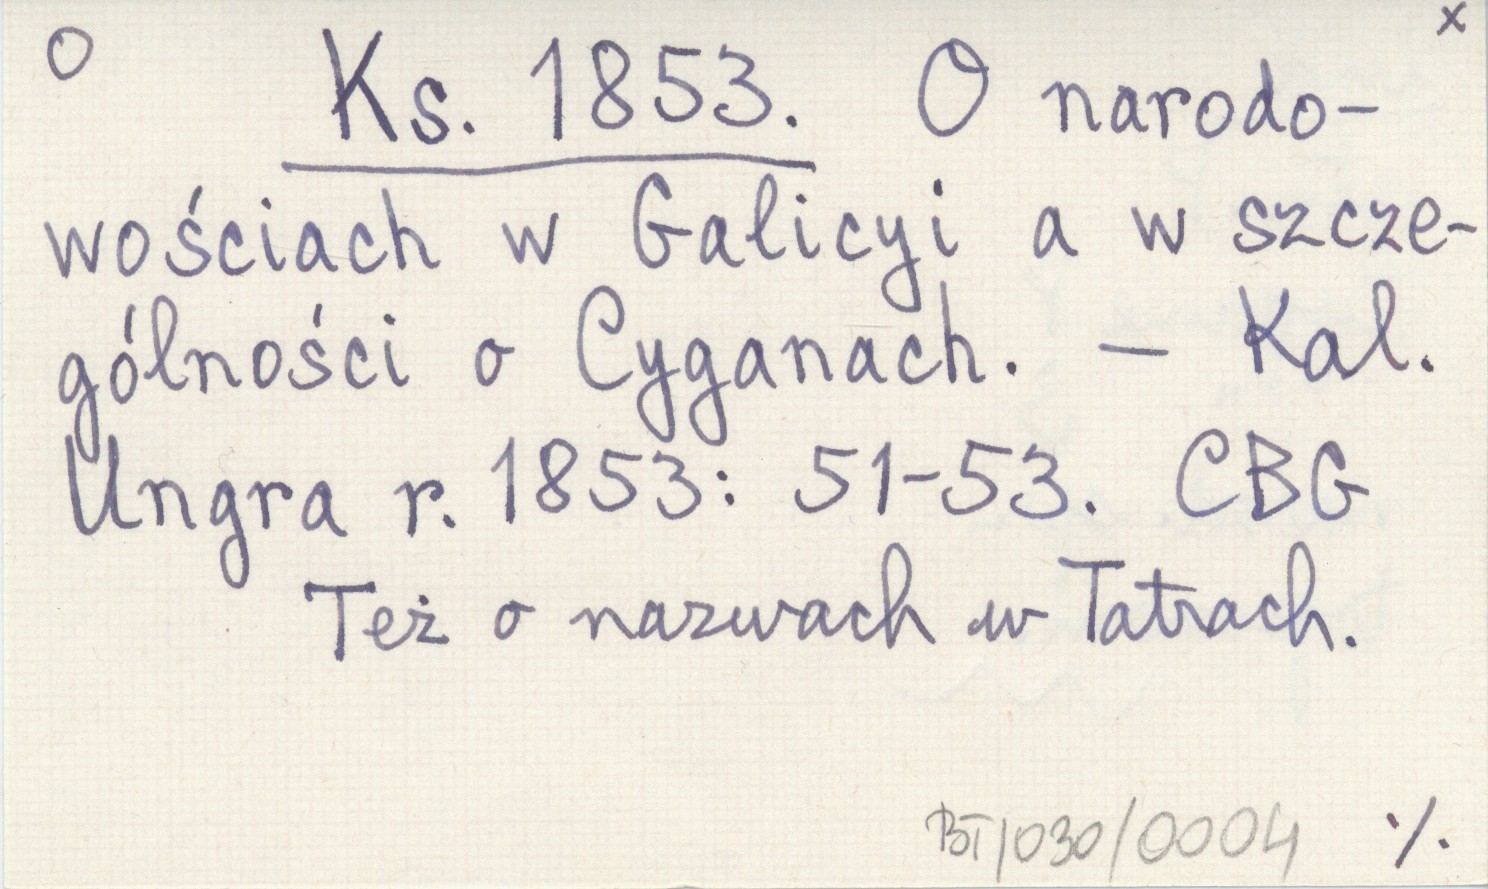 O x
Ks. 1853. O narodo-
wościach w Galicyi a w szcze-
gólności o Cyganach. — Kal.
Ungra r. 1853: 51-53. CBG
Też o nazwach w Tatrach.
BT/030/0004 ·/.